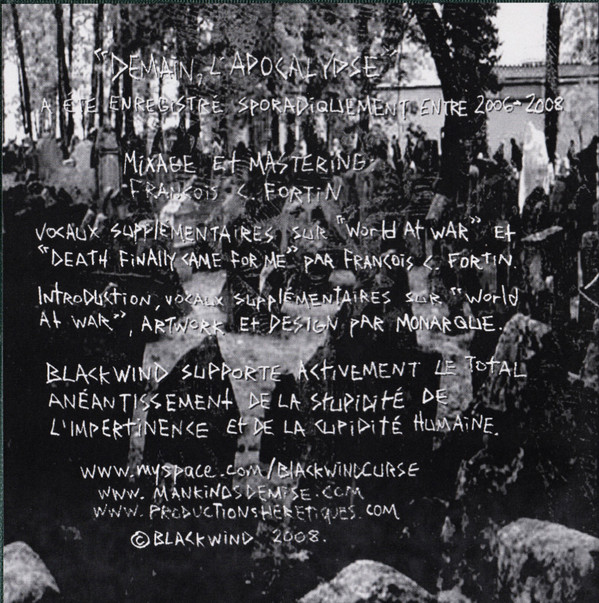 "DEMAIN, L'APOCALYPSE"
A ÉTÉ ENREGISTRÉ SPORADIQUEMENT ENTRE 2006-2008
MIXAGE ET MASTERING:
FRANÇOIS C. FORTIN
VOCAUX SUPPLÉMENTAIRES SUR "WORLD AT WAR" ET
"DEATH FINALLY CAME FOR ME" PAR FRANÇOIS C. FORTIN.
INTRODUCTION, VOCAUX SUPPLÉMENTAIRES SUR "WORLD
AT WAR", ARTWORK ET DESIGN PAR MONARQUE.
BLACKWIND SUPPORTE ACTIVEMENT LE TOTAL
ANÉANTISSEMENT DE LA STUPIDITÉ DE
L'IMPERTINENCE ET DE LA CUPIDITÉ HUMAINE.
www.myspace.com/BLACKWINDCURSE
WWW.MANKINDSDEMISE.COM
WWW.PRODUCTIONSHERETIQUES.COM
© BLACKWIND 2008.